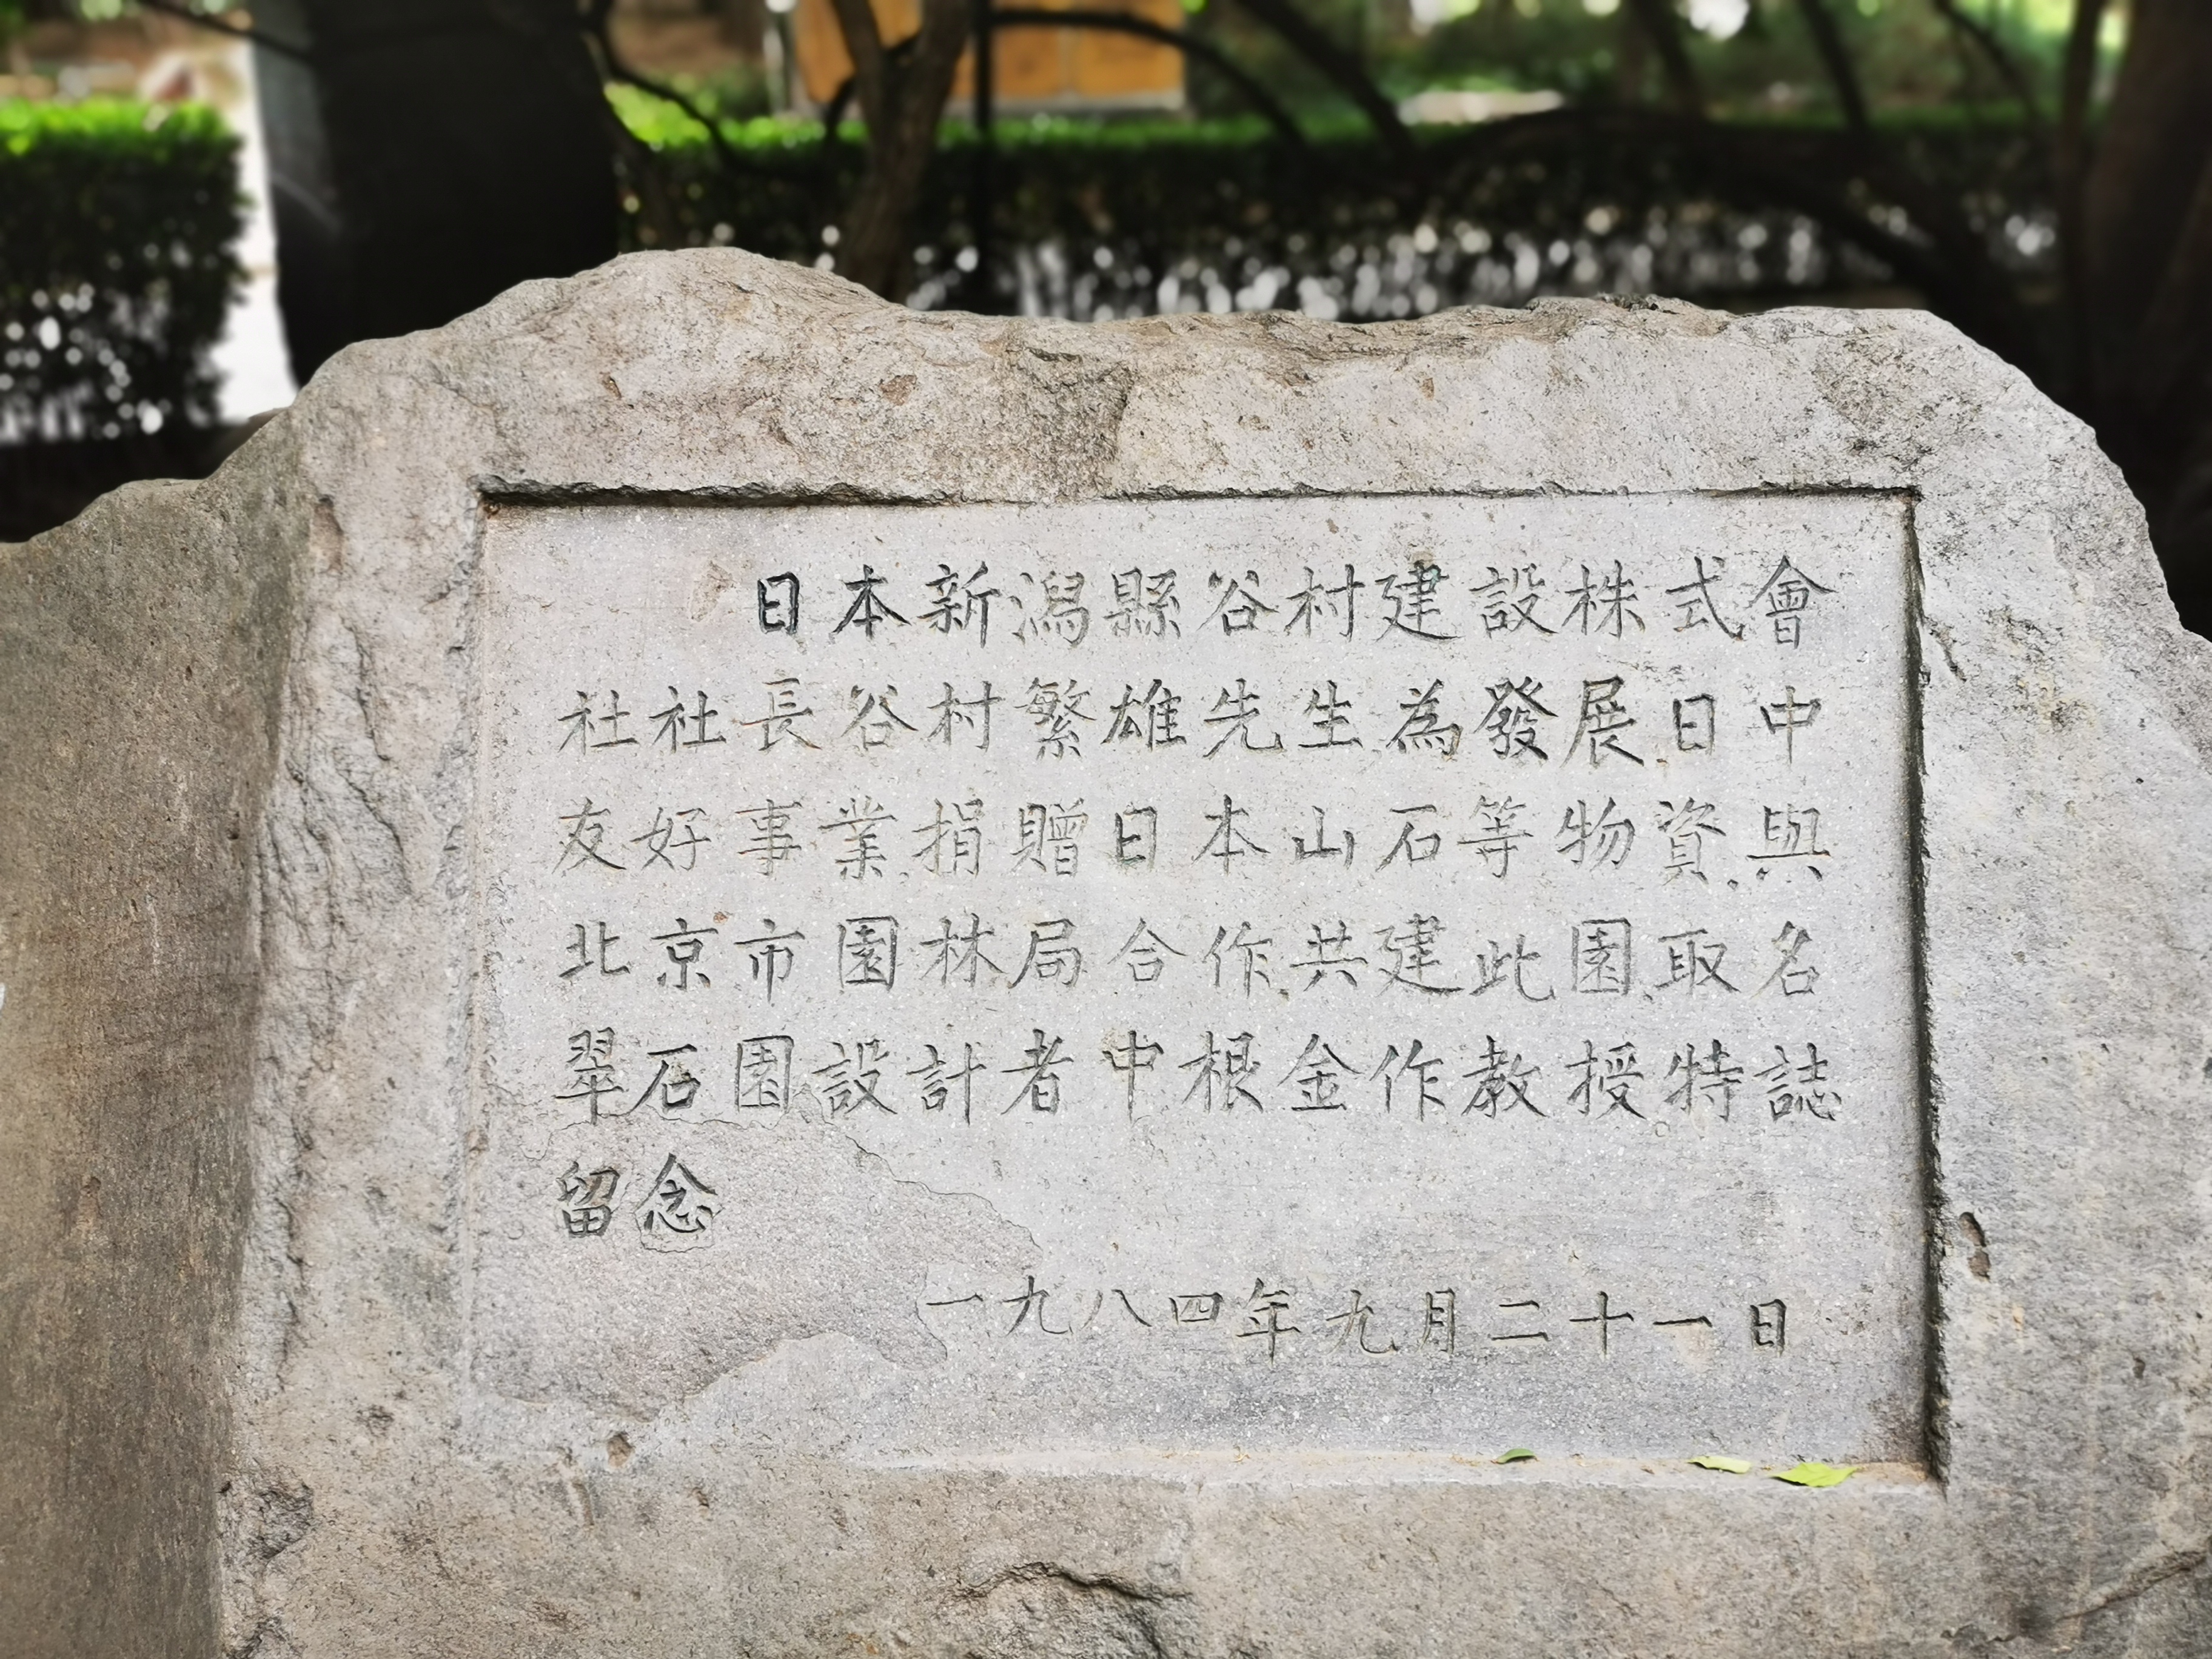 日本新潟縣谷村建設株式會
社社長谷村繁雄先生為發展日中
友好事業捐贈日本山石等物資與
北京市園林局合作共建此園取名
翠石園設計者中根金作教授特誌
留念
一九八四年九月二十一日